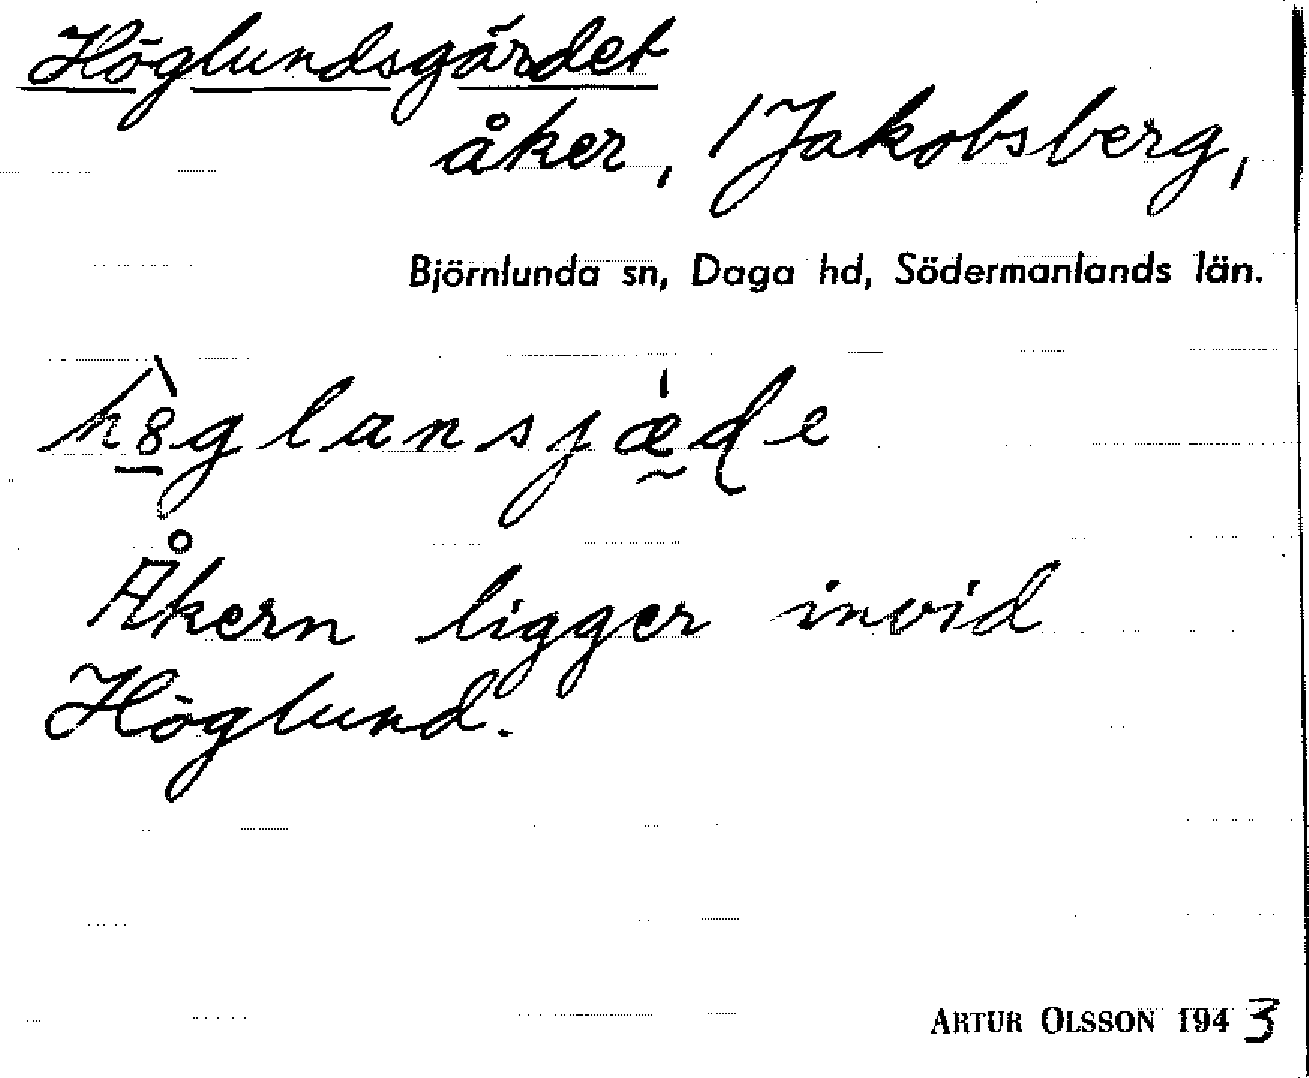 Höglundsgärdet
åker, / Jakobsberg,
Björnlunda sn, Daga hd, Södermanlands län.
h8̲̀glansjǽ̰de
Åkern ligger invid
Höglund.
ARTUR OLSSON 1943